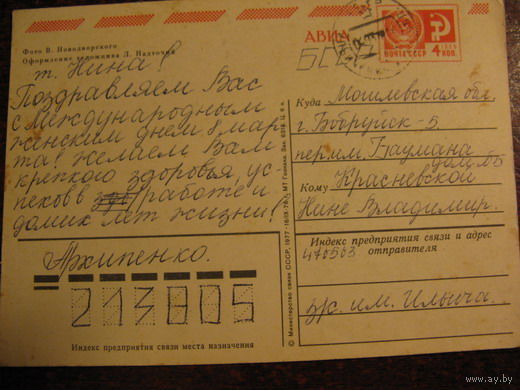 Фото В. Новодворского
Оформление художника Л. Надточия
АВИА
ПОЧТА СССР 4 КОП.
т. Нина!
Поздравляем Вас
с Международным
женским днем 8 мар
та! желаем Вам
крепкого здоровья, ус-
пехов в работе и
долгих лет жизни!
Архипенко.
213805
Индекс предприятия связи места назначения
© Министерство связи СССР, 1977
Куда Могилевская обл.
г. Бобруйск-5
пер. им. Баумана
дом
Кому Красневской
Нине Владимир.
Индекс предприятия связи и адрес
отправителя
470503
им. Ильича.
www.ay.by